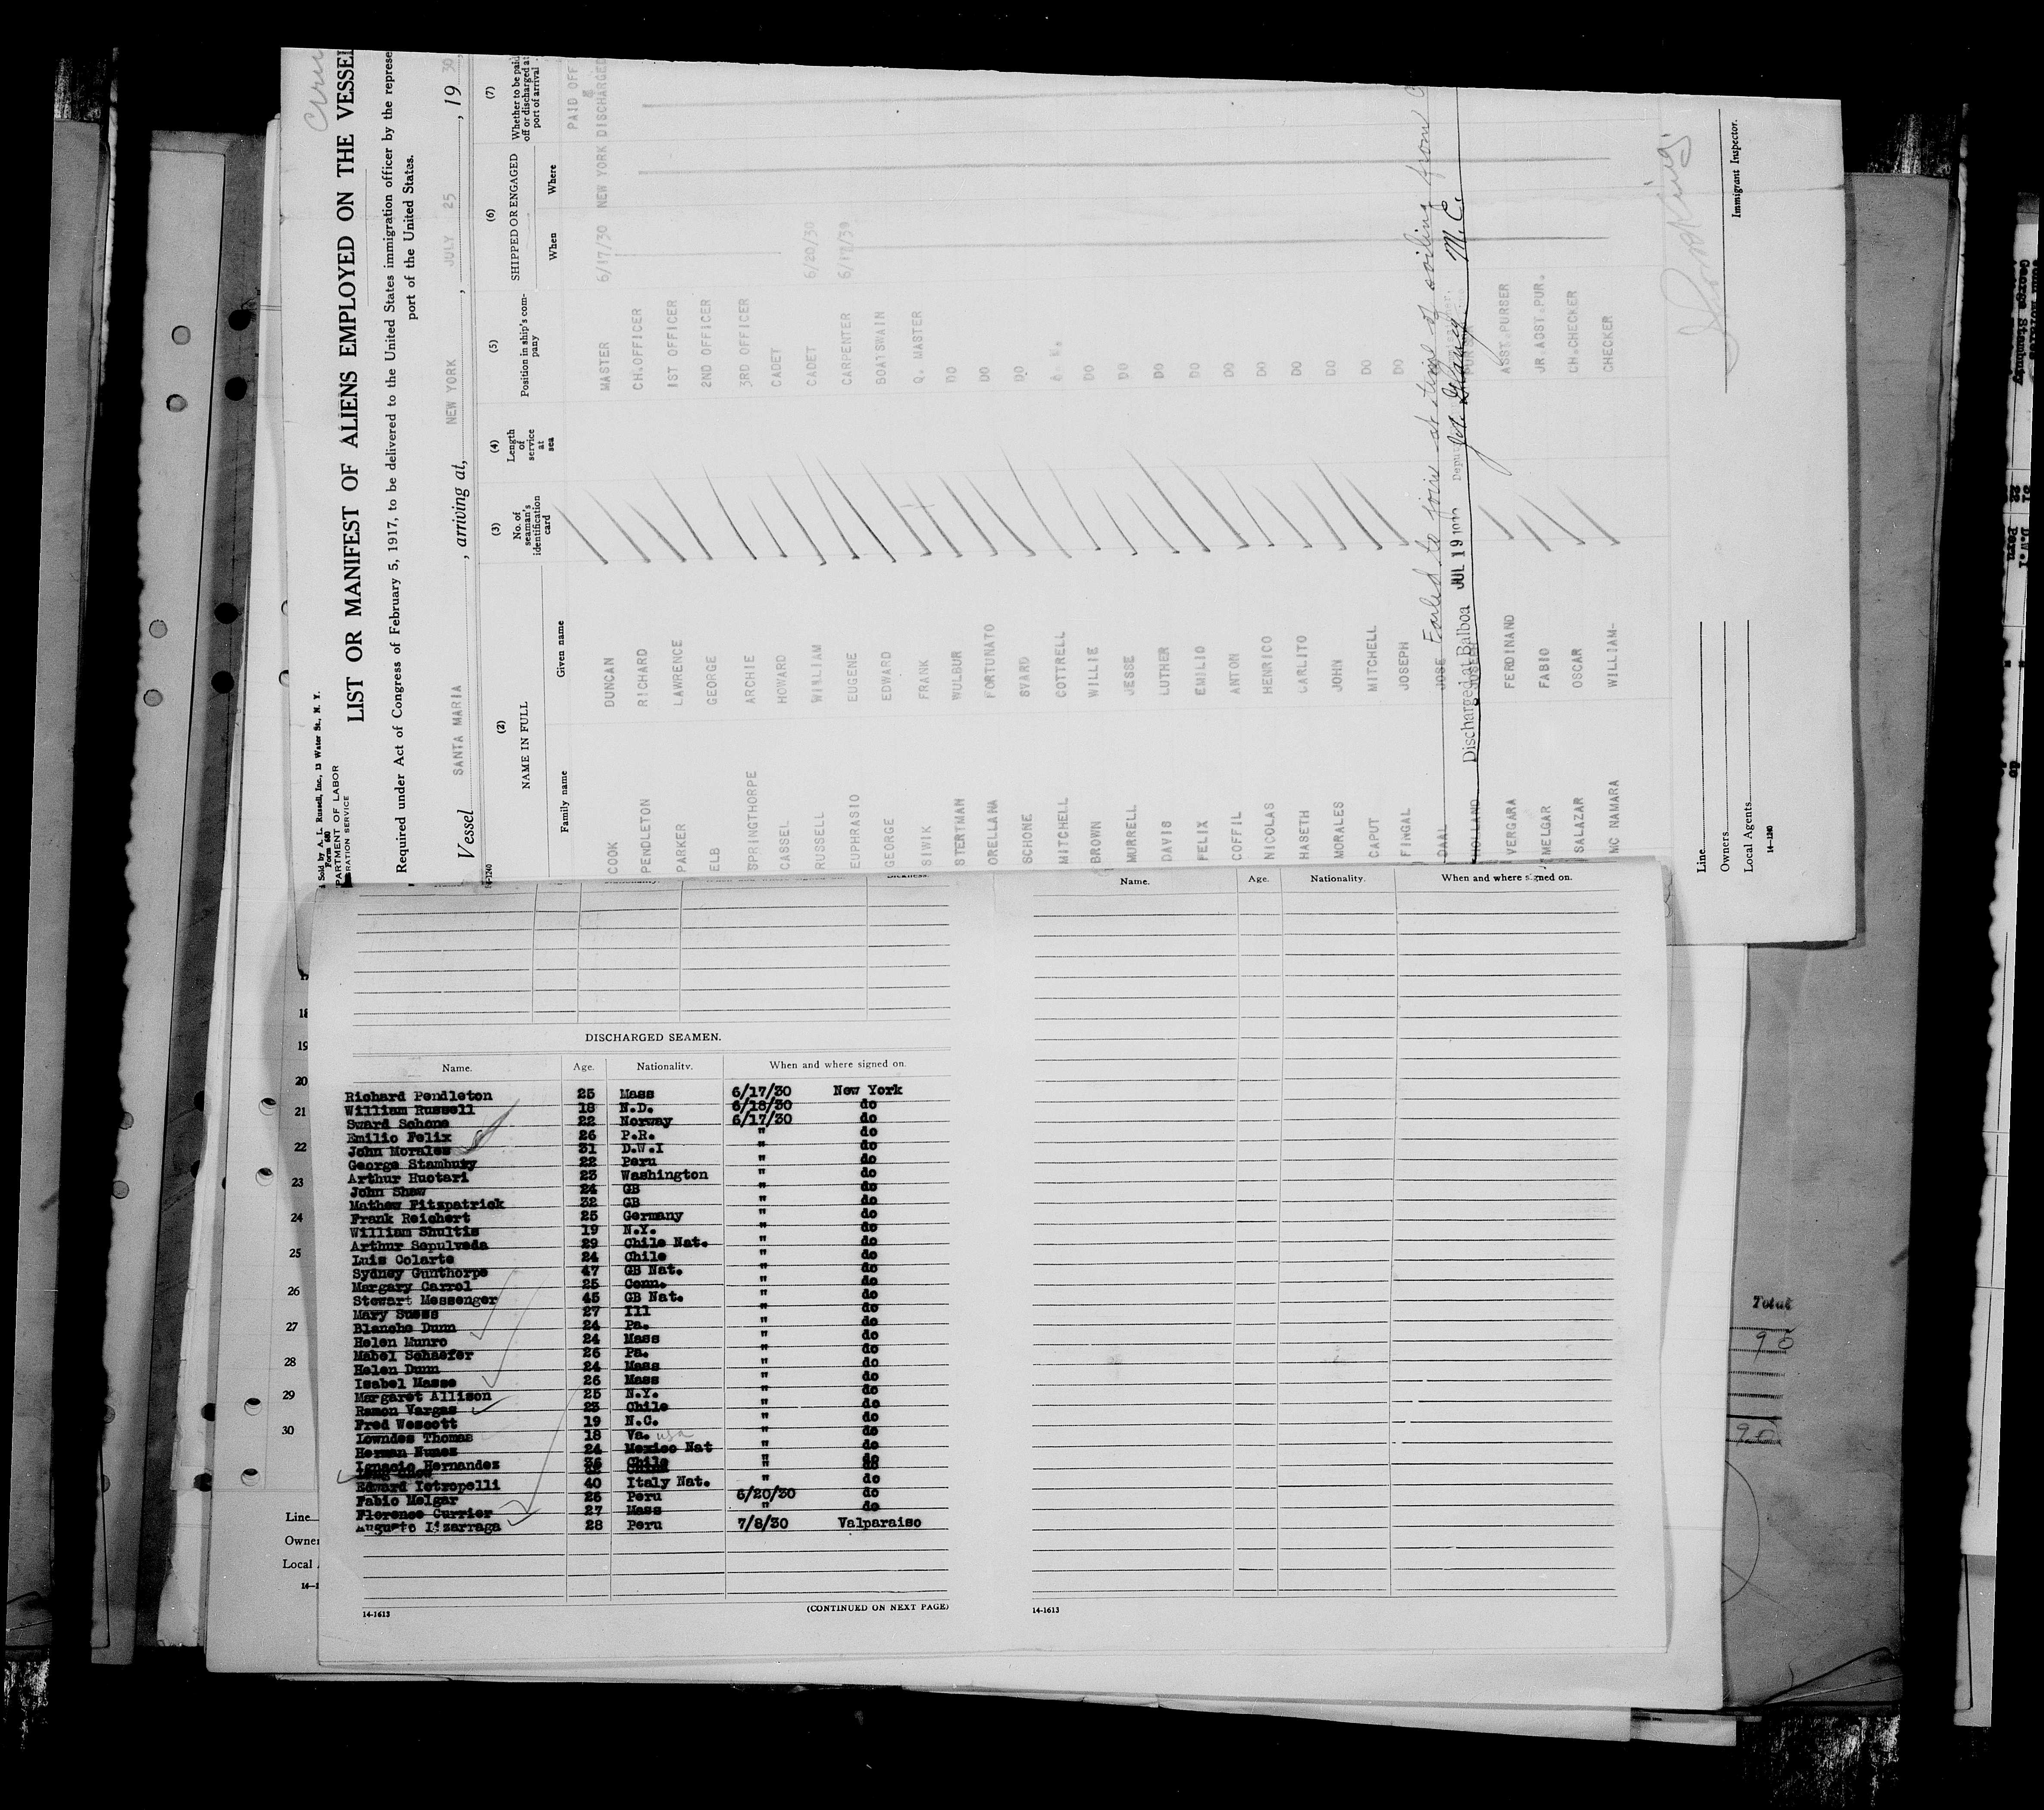 Sold by A. L. Russell, Inc., 13 Water St., N. Y.
Form 680
PARTMENT OF LABOR
RATION SERVICE
LIST OR MANIFEST OF ALIENS EMPLOYED ON THE VESSEL
Required under Act of Congress of February 5, 1917, to be delivered to the United States immigration officer by the represe
port of the United States.
Vessel SANTA MARIA, arriving at, NEW YORK, JULY 25, 19 30,
14-1240
(2) (3) (4) (5) (6) (7)
NAME IN FULL No. of seaman's identification card Length of service at sea Position in ship's company SHIPPED OR ENGAGED Whether to be paid off or discharged at port of arrival
Family name Given name When Where
PAID OFF
&
COOK DUNCAN MASTER 6/17/30 NEW YORK DISCHARGED
PENDLETON RICHARD CH.OFFICER
PARKER LAWRENCE 1ST OFFICER
ELB GEORGE 2ND OFFICER
SPRINGTHORPE ARCHIE 3RD OFFICER
CASSEL HOWARD CADET
RUSSELL WILLIAM CADET 6/20/30
EUPHRASIO EUGENE CARPENTER 6/17/39
GEORGE EDWARD BOATSWAIN
SIWIK FRANK Q. MASTER
STERTMAN WULBUR DO
ORELLANA FORTUNATO DO
SCHONE SVARD DO
MITCHELL COTTRELL
BROWN WILLIE DO
MURRELL JESSE DO
DAVIS LUTHER DO
FELIX EMILIO DO
COFFIL ANTON DO
NICOLAS HENRICO DO
HASETH CARLITO DO
MORALES JOHN DO
CAPUT MITCHELL DO
FINGAL JOSEPH DO
DAAL JOSE Failed to join at time of sailing from
HOLLAND Discharged at Balboa JUL 19 Deput M. C.
VERGARA FERDINAND ASST.PURSER
MELGAR FABIO JR.ASST.PUR.
SALAZAR OSCAR CH.CHECKER
MC NAMARA WILLIAM- CHECKER
Line
Owners
Local Agents
14-1240
Immigrant Inspector.
Name. Age. Nationality. When and where signed on.
DISCHARGED SEAMEN.
Name. Age. Nationality. When and where signed on.
Richard Pendleton 25 Mass 6/17/30 New York
William Russell 18 N.D. 6/18/30 do
Sward Schone 22 Norway 6/17/30 do
Emilio Felix 26 P.R. " do
John Morales 31 D.W.I " do
George Stambury 22 Peru " do
Arthur Huotari 23 Washington " do
John Shaw 24 GB " do
Mathew Fitzpatrick 32 GB " do
Frank Reichert 25 Germany " do
William Shultis 19 N.Y. " do
Arthur Sepulveda 29 Chile Nat. " do
Luis Colarte 24 Chile " do
Sydney Gunthorpe 47 GB Nat. " do
Margary Carrol 25 Conn. " do
Stewart Messenger 45 GB Nat. " do
Mary Suess 27 Ill " do
Blanche Dunn 24 Pa. " do
Helen Munro 24 Mass " do
Mabel Schaefer 26 Pa. " do
Helen Dunn 24 Mass " do
Isabel Masse 26 Mass " do
Margaret Allison 25 N.Y. " do
Ramon Vargas 23 Chile " do
Fred Wescott 19 N.C. " do
Lowndes Thomas 18 Va. usa " do
Herman Nunez 24 Mexico Nat " do
Ignacio Hernandez 36 Chile " do
Edward Iotropelli 40 Italy Nat. " do
Fabio Melgar 26 Peru 6/20/30 do
Florence Currier 27 Mass " do
Augusto Lizarraga 28 Peru 7/8/30 Valparaiso
14-1613
(CONTINUED ON NEXT PAGE)
14-1613
18
19
20
21
22
23
24
25
26
27
28
29
30
Line
Owner
Local
Total
90
90